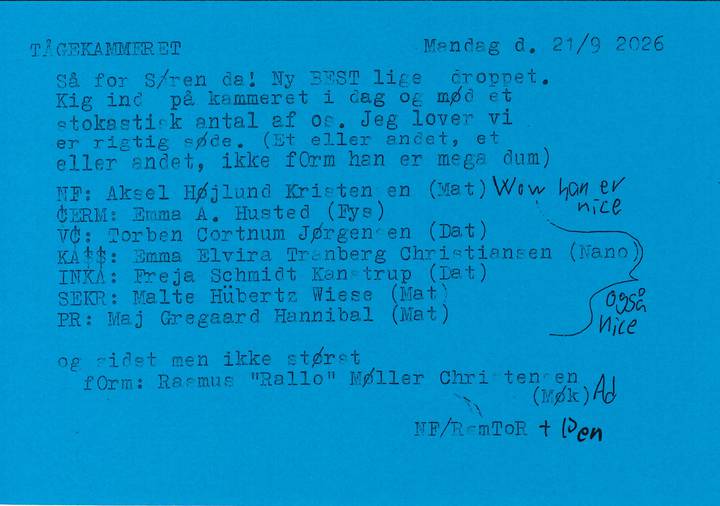 TÅGEKAMMERET Mandag d. 21/9 2026
Så for S/ren da! Ny BEST lige droppet.
Kig ind på kammeret i dag og mød et
stokastisk antal af os. Jeg lover vi
er rigtig søde. (Et eller andet, et
eller andet, ikke fOrm han er mega dum)
NF: Aksel Højlund Kristensen (Mat) Wow han er
nice
CERM: Emma A. Husted (Fys)
VC: Torben Cortnum Jørgensen (Dat)
KA$$: Emma Elvira Tranberg Christiansen (Nano)
INKA: Freja Schmidt Kanstrup (Dat)
SEKR: Malte Hübertz Wiese (Mat)
PR: Maj Gregaard Hannibal (Mat)
også
nice
og sidst men ikke størst
fOrm: Rasmus "Rallo" Møller Christensen
(Møk) Ad
NF/RemToR + Pen